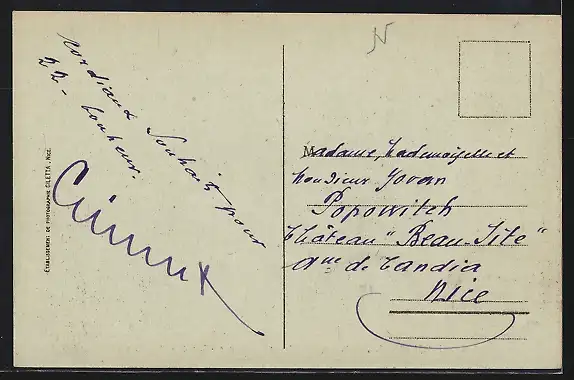 N
Cordiaux Souhaits pour
22 - bonheur.
ÉTABLISSEMENT DE PHOTOGRAPHIE GILETTA, NICE.
Madame, Mademoiselle et
Monsieur Jovan
Popowitch
Château "Beau-Site"
Ave de Candia
Nice